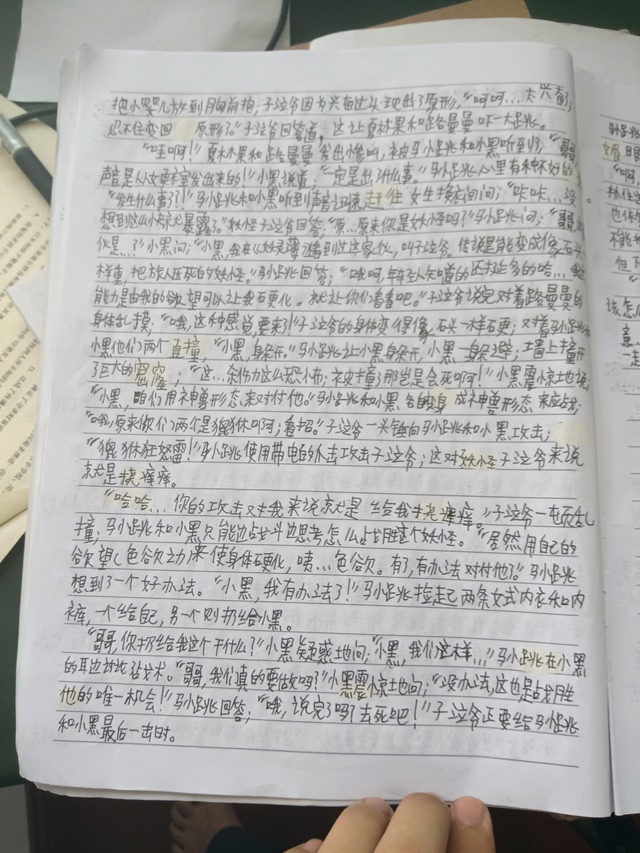 把小婴儿放到胸前抱；子泣爷因为兴奋过头现出了原形，“呵呵…太兴奋了，
忍不住变回 原形了。”子泣爷回答道。这让夏林果和路曼曼吓一大跳。
“哇啊！”夏林果和路曼曼发出惨叫，被马小跳和小黑听到了。“哥哥，
声音是从女更衣室发出来的！”小黑说道。“一定是出什么事。”马小跳心里有种不好的
“发生什么事了！”马小跳和小黑听到声音立马赶往女生换衣间问；“咔咔…没
想到这么快就暴露了。”妖怪子泣爷回答，“原…原来你是妖怪吗？”马小跳问；“哥哥，
伙是…？”小黑问；“小黑，我在《妖灵簿》看到过这家伙，叫子泣爷。传说是能变成像石头
样重，把敌人压死的妖怪。”马小跳回答；“哦呵，年轻人知道的还挺多的哈…我
能力是由我的欲望可以让我石更化。就让你们看看吧。”子泣爷说完对着路曼曼的
身体乱摸；“哦，这种感觉要来了！”子泣爷的身体变得像石头一样石更；对着马小跳
小黑他们两个直撞，“小黑，躲开。”马小跳让小黑躲开，小黑一躲避；墙上撞开
了巨大的窟窿；“这…杀伤力这么恐怖；被撞了那岂是会死啊！”小黑震惊地说
“小黑，咱们用神兽形态来对付他。”马小跳和小黑各自变身成神兽形态来应战；
“哦，原来你们两个是貔貅啊；看招。”子泣爷一头锤向马小跳和小黑攻击；
“貔貅狂怒雷！”马小跳使用带电的外击攻击子泣爷；这对妖怪子泣爷来说
就是挠痒痒。
“哈哈…你的攻击对我来说就是 给我挠痒痒。”子泣爷一屯顿乱
撞；马小跳和小黑只能边战斗边思考怎么占胜这个妖怪。“居然用自己的
欲望（色欲之力）来使身体硬化，咦…色欲。有了，有办法对付他了。”马小跳
想到了一个好办法。“小黑，我有办法了！”马小跳捡起两条女式内衣和内
裤，一个给自己，另一个则扔给小黑。
“哥哥，你扔给我这个干什么？”小黑疑惑地问；“小黑，我们这样…”马小跳在小黑
的耳边讨论战术。“哥哥，我们真的要做吗？”小黑震惊地问；“没办法，这也是战胜
他的唯一机会！”马小跳回答；“哦，说完了吗？去死吧！”子泣爷正要给马小跳
和小黑最后一击时。